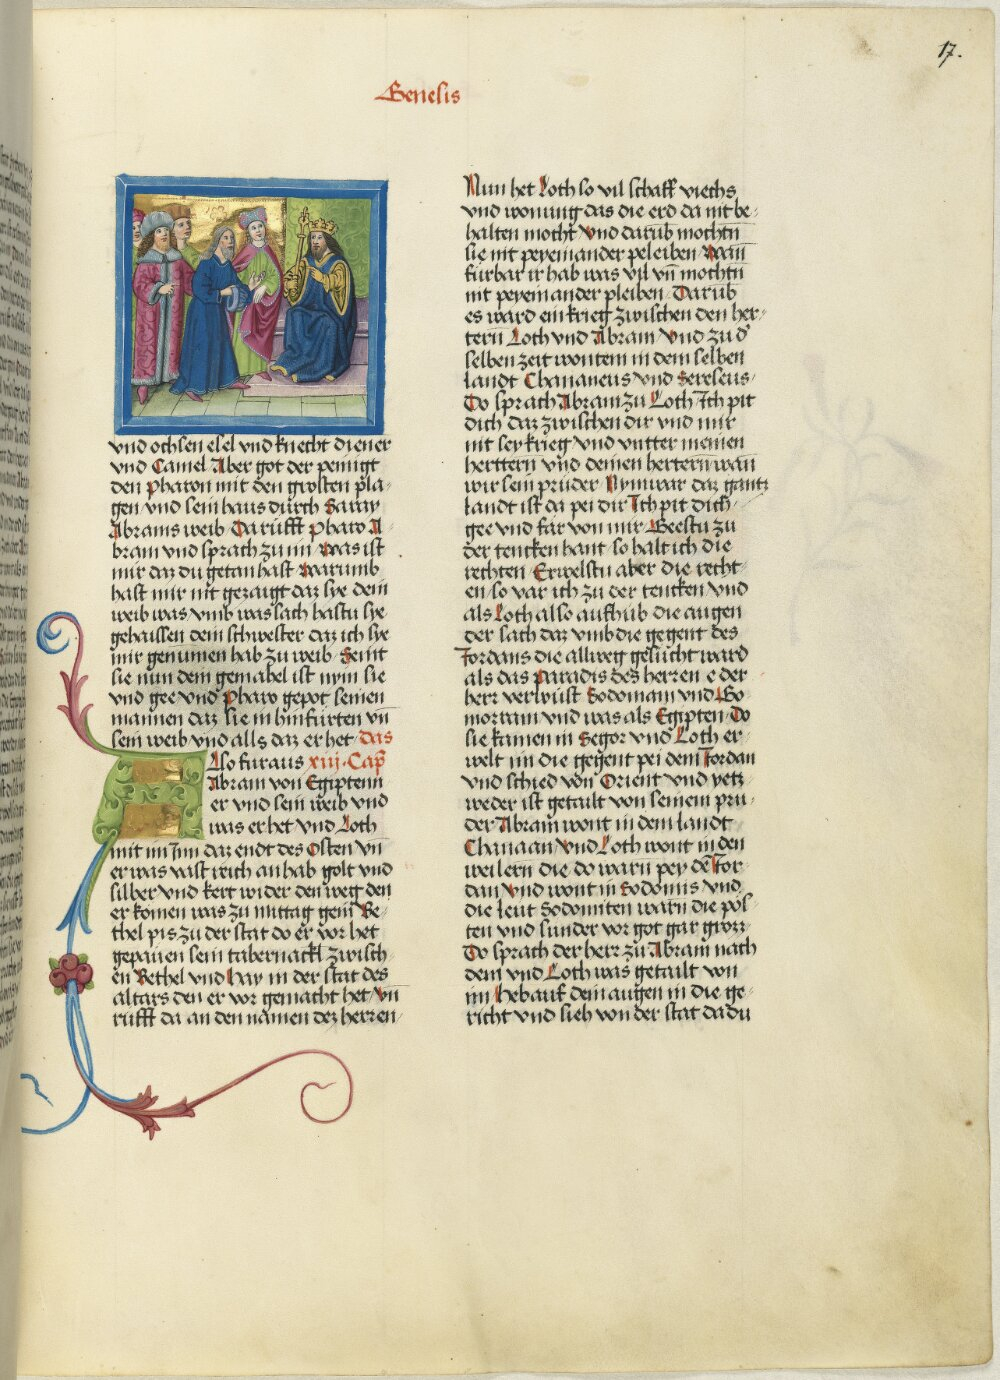 17.
Genesis
vnd ochsen esel vnd knecht diener
vnd Camel Aber got der peinigt
den Pharon mit den grosten pla-
gen vnd sein haus durch Saray
Abrams weib Darufft pharo A-
bram vnd sprach zu im Was ist
mir daz du getan hast Warumb
hast mir nit gezaigt daz sye dein
weib was vmb was sach hastu sye
gehaissen dein schwester daz ich sye
mir genumen hab zu weib Seint
sie nun dein gemahel ist nym sie
vnd gee vnd Pharo gepot seinen
mannen daz sie in hinfurten vn̄
sein weib vnd alls daz er het das
Also fur aus xiij Cap̄
Abram von Egiptenn
er vnd sein weib vnd
was er het vnd Loth
mit im Inn daz endt des Osten vn̄
er was vast reich an hab golt vnd
silber vnd kert wider den weg den
er komen was zu mittag gein Be-
thel pis zu der stat do er vor het
gepauen sein tabernackl zwisch-
en Bethel vnd Hay in der stat des
altars den er vor gemacht het Vn̄
rufft da an den namen dez herren
Nun het Loth so vil schaff viechs
vnd wonung das die erd da nit be-
halten mocht Vnd darub mochtn
sie nit peyeinander peleiben Wan̄
furbar ir hab was vil vn̄ mochtn
nit peyeinander pleiben Darub
es ward ein krieg zwischen den her-
tern Loth vnd Abram Vnd zu d'
selben zeit wonten in dem selben
landt Chananeus vnd Fereseus
Do sprach Abram zu Loth Ich pit
dich daz zwischen dir vnd mir
nit sey krieg vnd vntter meinen
herttern vnd deinen hertern wan
wir sein pruder Nymwar daz gantz
landt ist da pei dir Ich pit dich
gee vnd far von mir Geestu zu
der tencken hant so halt ich die
rechten Erwelstu aber die recht-
en so var ich zu der tencken vnd
als Loth also aufhub die augen
der sach daz vmb die gegent des
Jordans die allweg gesucht ward
als das Paradis des herren e der
herr verwust Sodomam vnd Go-
morram vnd was als Egipten Do
sie kamen in Segor vnd Loth er-
welt im die gegent pei dem Jordan
vnd schied von Orient vnd yetz
weder ist getailt von seinem pru-
der Abram wont in dem landt
Chanaan Vnd Loth wont in den
weilern die do warn pey dē Jor-
dan Vnd wont in Sodomis vnd
die leut Sodomiten warn die pös-
ten vnd sunder vor got gar grozz
Do sprach der herr zu Abram nach
dem vnd Loth was getailt von
im Heb auf dein augen in die ge-
richt vnd sieh von der stat da du